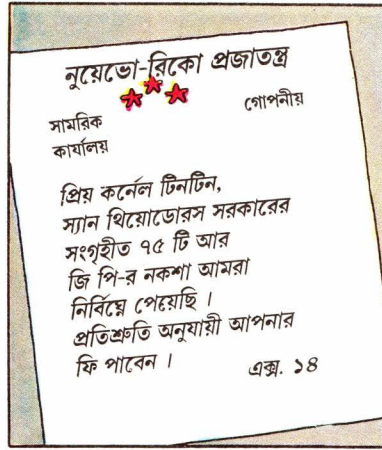 নুয়েভো-রিকো প্রজাতন্ত্র
গোপনীয়
সামরিক
কার্যালয়
প্রিয় কর্নেল টিনটিন,
স্যান থিয়োডোরস সরকারের
সংগৃহীত ৭৫ টি আর
জি পি-র নকশা আমরা
নির্বিঘ্নে পেয়েছি ।
প্রতিশ্রুতি অনুযায়ী আপনার
ফি পাবেন ।
এক্স. ১৪